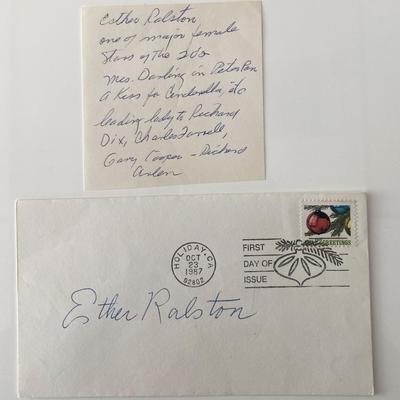 Esther Ralston
one of major female
Stars of the 20s
Mrs. Darling in Peter Pan
A Kiss for Cinderella, etc
leading lady to Richard
Dix, Charles Farrell,
Gary Cooper - Richard
Arlen
HOLIDAY, CA
OCT
23
1987
92802
FIRST
DAY OF
ISSUE
GREETINGS
Esther Ralston